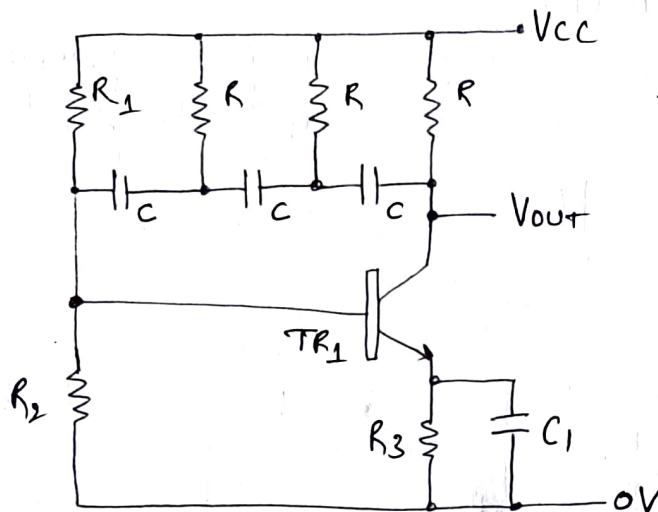 VCC
R1 R R R
C C C
VOUT
TR1
R2
R3 C1
0V